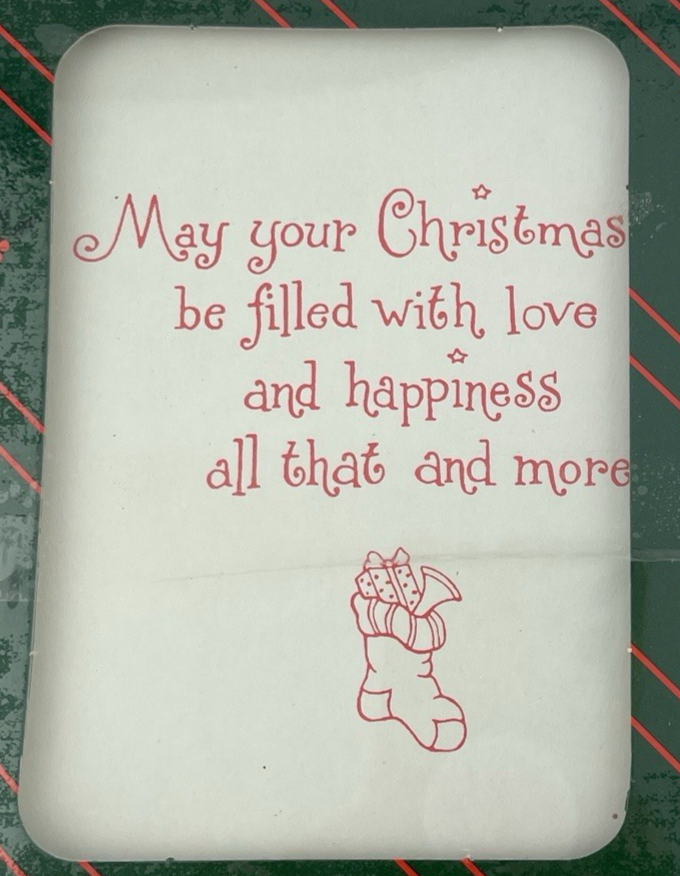 May your Christmas
be filled with love
and happiness
all that and more